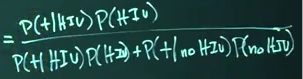 = P(+|HIV) P(HIV)
P(+|HIV) P(HIV) + P(+|no HIV) P(no HIV)